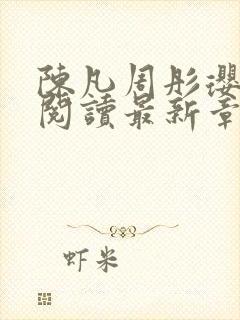 陳凡周彤瓔
閱讀最新章
虾米